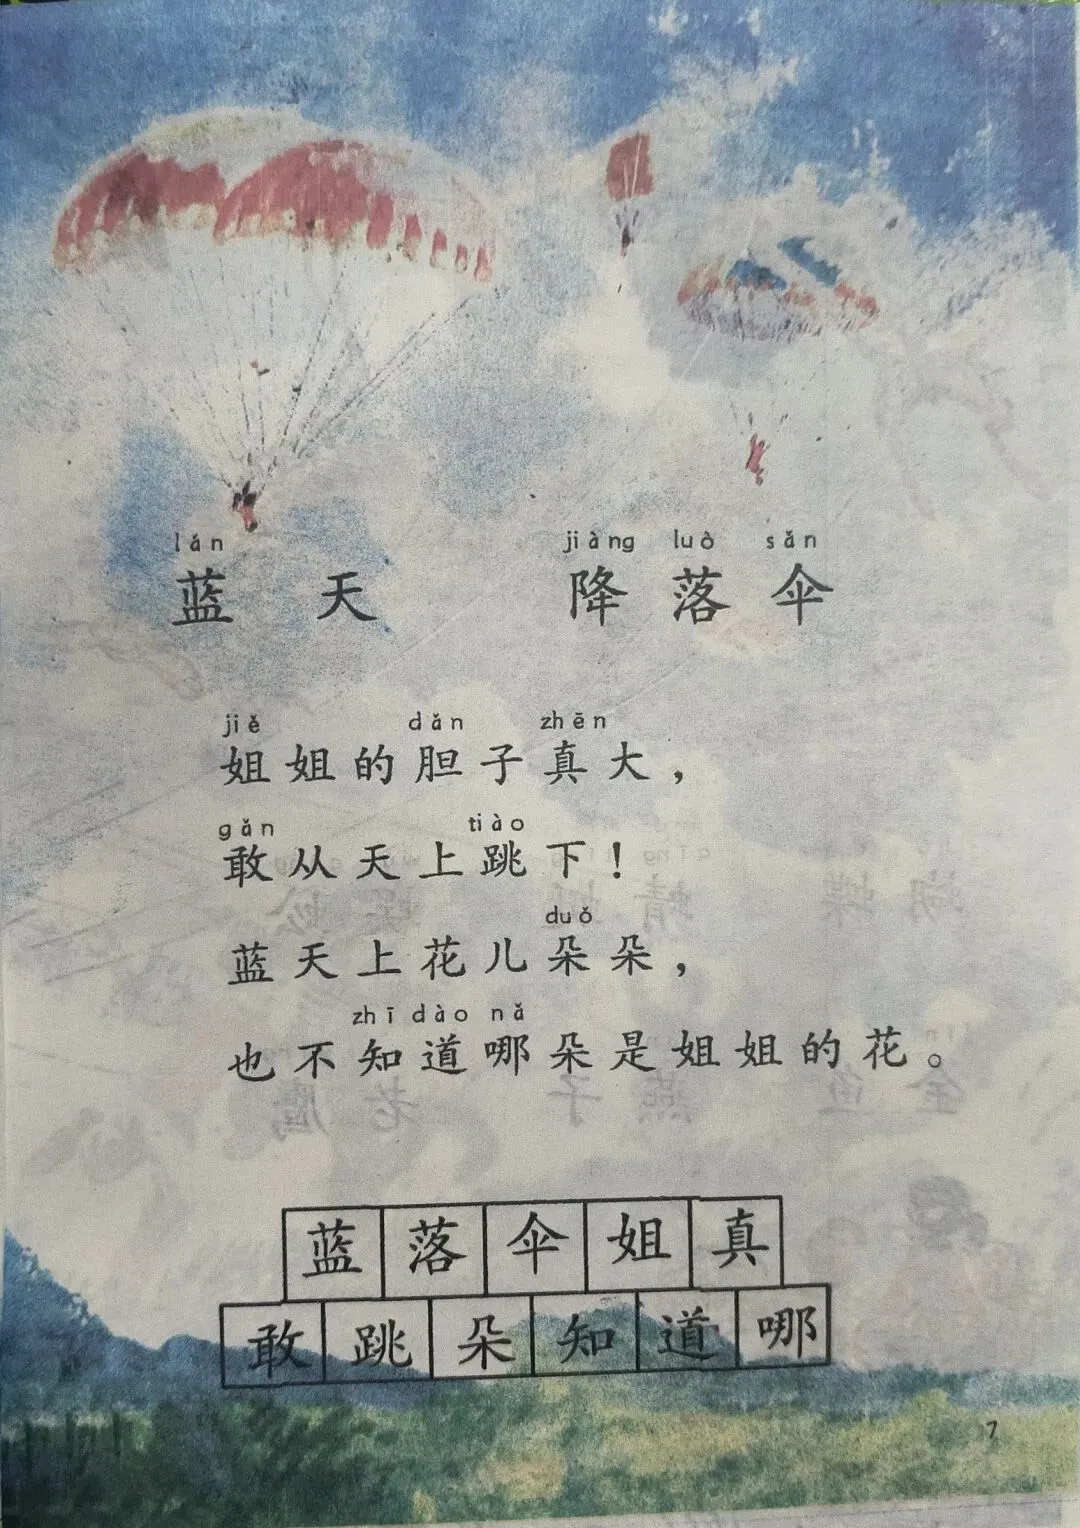 lán jiàng luò sǎn
蓝 天 降 落 伞
jiě dǎn zhēn
姐姐的胆子真大，
gǎn tiào
敢从天上跳下！
duǒ
蓝天上花儿朵朵，
zhī dào nǎ
也不知道哪朵是姐姐的花。
蓝 落 伞 姐 真
敢 跳 朵 知 道 哪
7